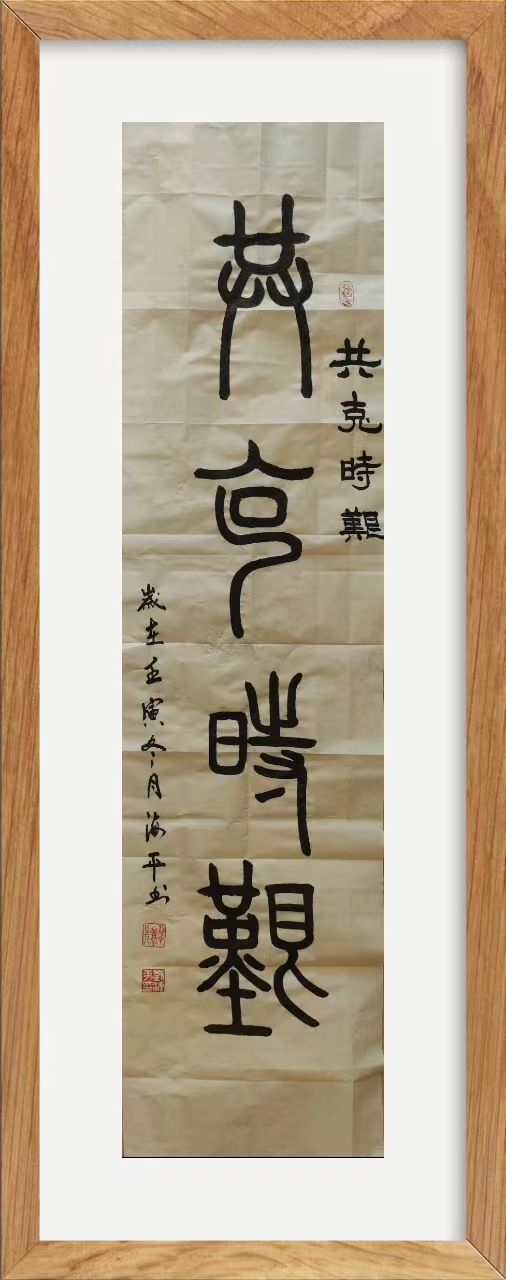 共克時艱
共克時艱
歲在壬寅冬月海平書